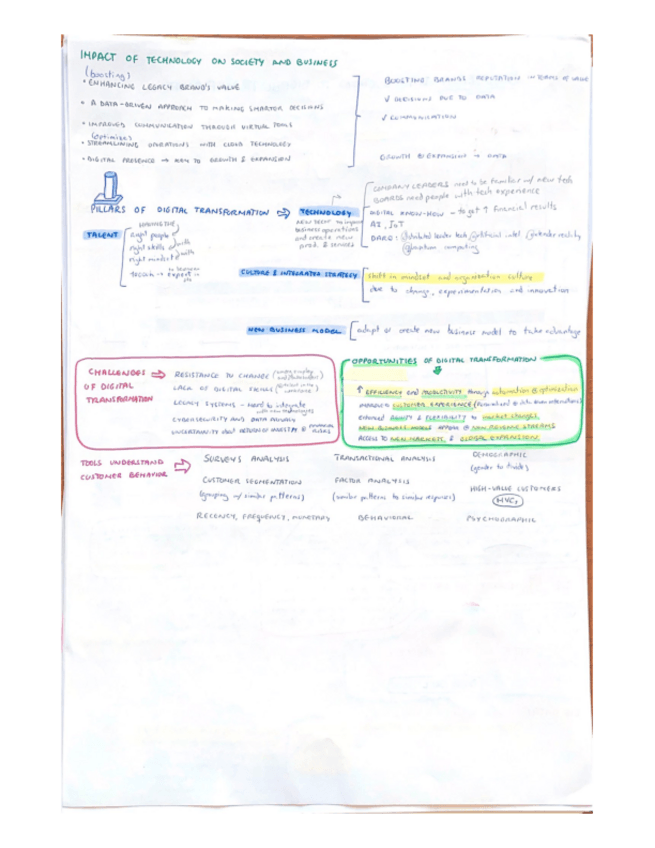 IMPACT OF TECHNOLOGY ON SOCIETY AND BUSINESS
(boosting)
• ENHANCING LEGACY BRAND'S VALUE
• A DATA-DRIVEN APPROACH TO MAKING SMARTER DECISIONS
• IMPROVES COMMUNICATION THROUGH VIRTUAL TOOLS
(optimize)
• STREAMLINING OPERATIONS WITH CLOUD TECHNOLOGY
• DIGITAL PRESENCE → KEY TO GROWTH & EXPANSION
BOOSTING BRANDS REPUTATION IN TERMS OF VALUE
✓ DECISIONS DUE TO DATA
✓ COMMUNICATION
GROWTH & EXPANSION → DATA
PILLARS OF DIGITAL TRANSFORMATION ⇒ TECHNOLOGY
new
business operations
and create new
prod. & services
COMPANY LEADERS need to be familiar w/ new tech
BOARDS need people with tech experience
DIGITAL KNOW-HOW → to get ↑ financial results
AI, IoT
DARQ: distributed ledger tech artificial intel extended reality
quantum computing
TALENT
HAVING THE
right people
right skills
right mindset
CULTURE & INTEGRATED STRATEGY
shift in mindset and organisation culture
due to change, experimentation and innovation
NEW BUSINESS MODEL
adapt or create new business model to take advantage
CHALLENGES OF DIGITAL TRANSFORMATION ⇒
RESISTANCE TO CHANGE
LACK OF DIGITAL SKILLS
LEGACY SYSTEMS → hard to integrate
with new technologies
CYBERSECURITY AND DATA PRIVACY
UNCERTAINITY about RETURN OF INVESTM &
OPPORTUNITIES OF DIGITAL TRANSFORMATION
↑ EFFICIENCY and PRODUCTIVITY through automation & optimization
CUSTOMER EXPERIENCE
AGILITY & FLEXIBILITY to market changes
NEW BUSINESS MODELS appear & NEW REVENUE STREAMS
ACCESS TO NEW MARKETS & GLOBAL EXPANSION
TOOLS UNDERSTAND CUSTOMER BEHAVIOR ⇒
SURVEYS ANALYSIS
TRANSACTIONAL ANALYSIS
DEMOGRAPHIC
(gender to divide)
CUSTOMER SEGMENTATION
(grouping w/ similar patterns)
FACTOR ANALYSIS
(similar patterns to similar responses)
HIGH-VALUE CUSTOMERS
HVCs
RECENCY, FREQUENCY, MONETARY
BEHAVIORAL
PSYCHOGRAPHIC